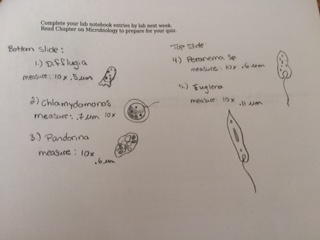 Complete your lab notebook entries by lab next week.
Read Chapter on Microbiology to prepare for your quiz.
Bottom Slide:
1.) Difflugia
measure: 10x .5um
2) Chlamydomonas
measure: .7 um 10x
3.) Pandorina
measure: 10x
.6um
Top Slide
4.) Peranema Sp
measure: 10x .6um
5.) Euglena
measure: 10x
.11um